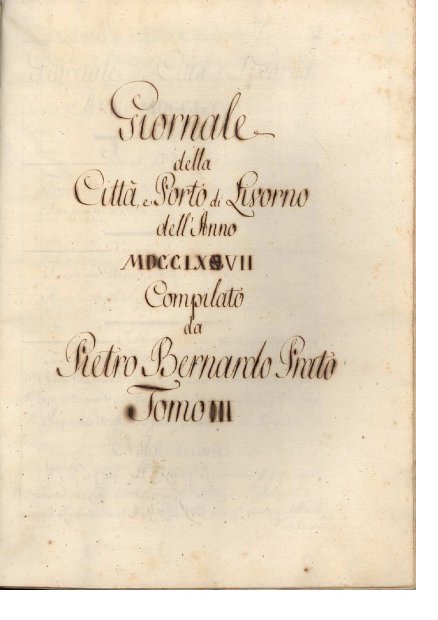 Giornale
della
Città, e Porto di Livorno
dell'Anno
MDCCLXVII
Compilato
da
Pietro Bernardo Prato
Tomo III